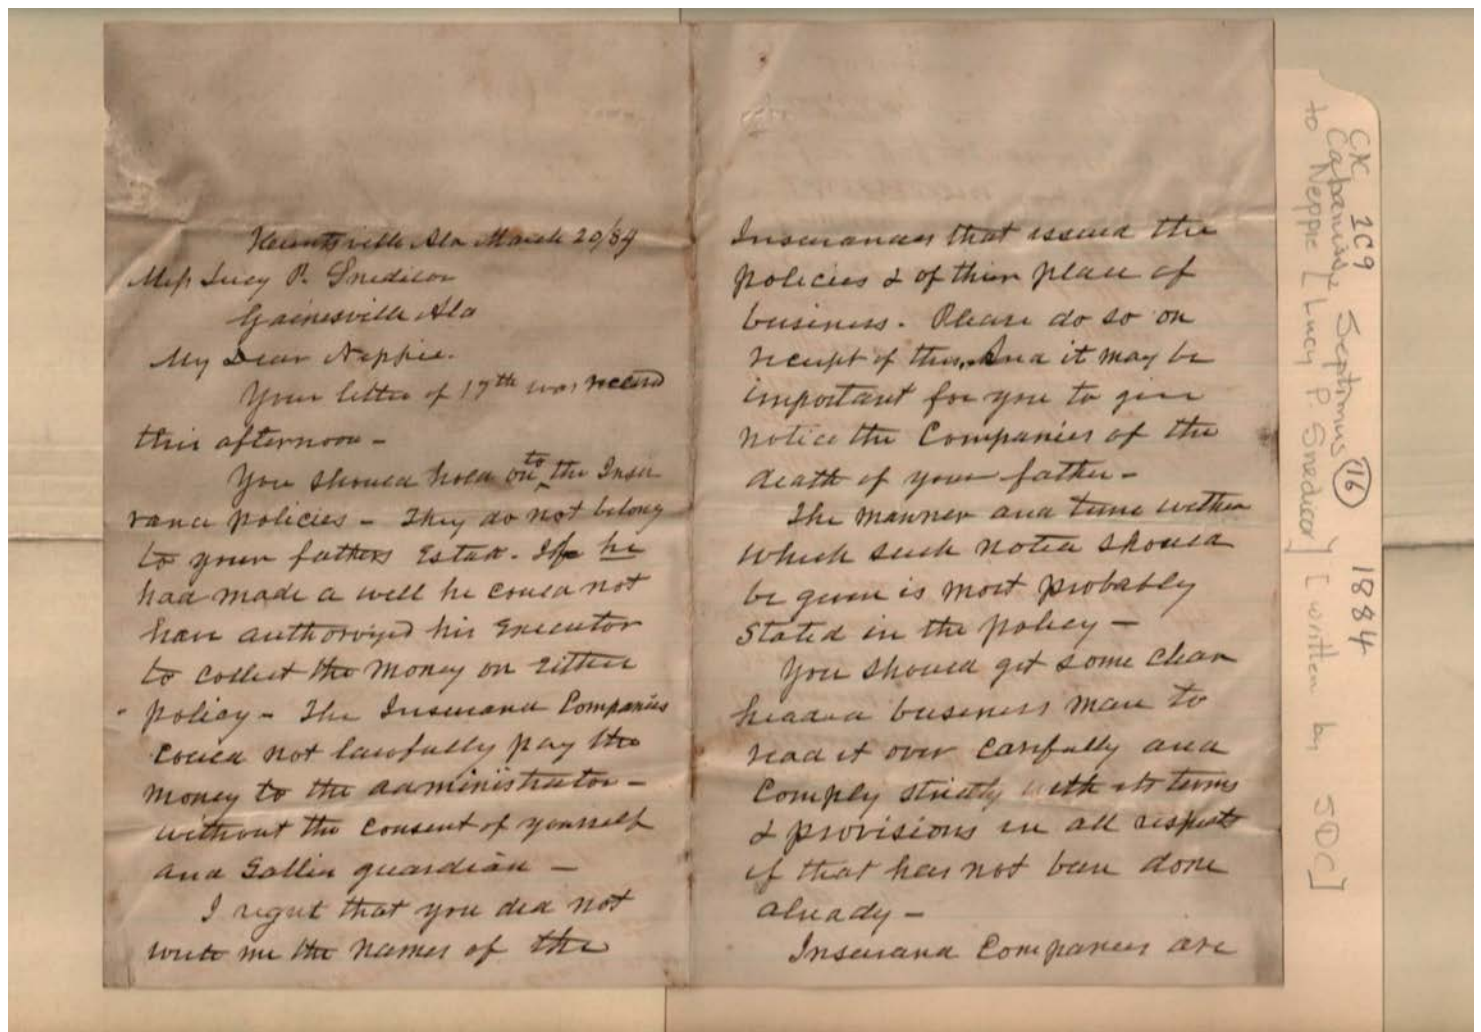 Huntsville Ala March 20/84
Miss Lucy P. Snedicor
Gainesville Ala
My Dear Neppie.
Your letter of 17th was received
this afternoon -
You should hold on to the Insu
rance policies - They do not belong
to your fathers Estate. If he
had made a will he could not
have authorized his Executor
to collect the money on either
policy - The Insurance Companies
could not lawfully pay the
money to the administrator -
without the consent of yourself
and guardian -
I regret that you did not
write me the names of the
Insurances that issued the
policies & of their place of
business. Please do so on
receipt of this. And it may be
important for you to give
notice the Companies of the
death of your father -
The manner and time within
which such notice should
be given is most probably
stated in the policy -
You should get some clear
headed business man to
read it over carefully and
comply strictly with its terms
& provisions in all respects
if that has not been done
already -
Insurance Companies are
CK 2C9 16 1884
Cabaniss, Septimus
to Neppie [Lucy P. Snedicor] [written by SDC]